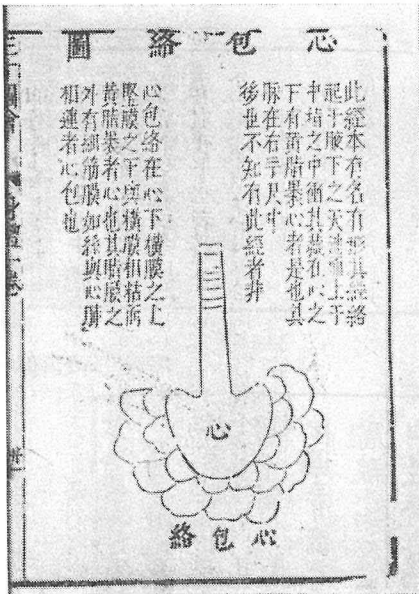 心包絡圖
此經本有名有形其經絡
起于腋下之天池上于
中指之中衝其藏在心之
下有黃脂裹心者是也其
脉在右手尺中
後世不知有此經者非
心包絡在心下橫膜之上
竪膜之下與橫膜相粘而
黃脂裹者心也其脂膜之
外有細筋膜如絲與心肺
相連者心包也
心
心包絡
三才圖會
身體一卷